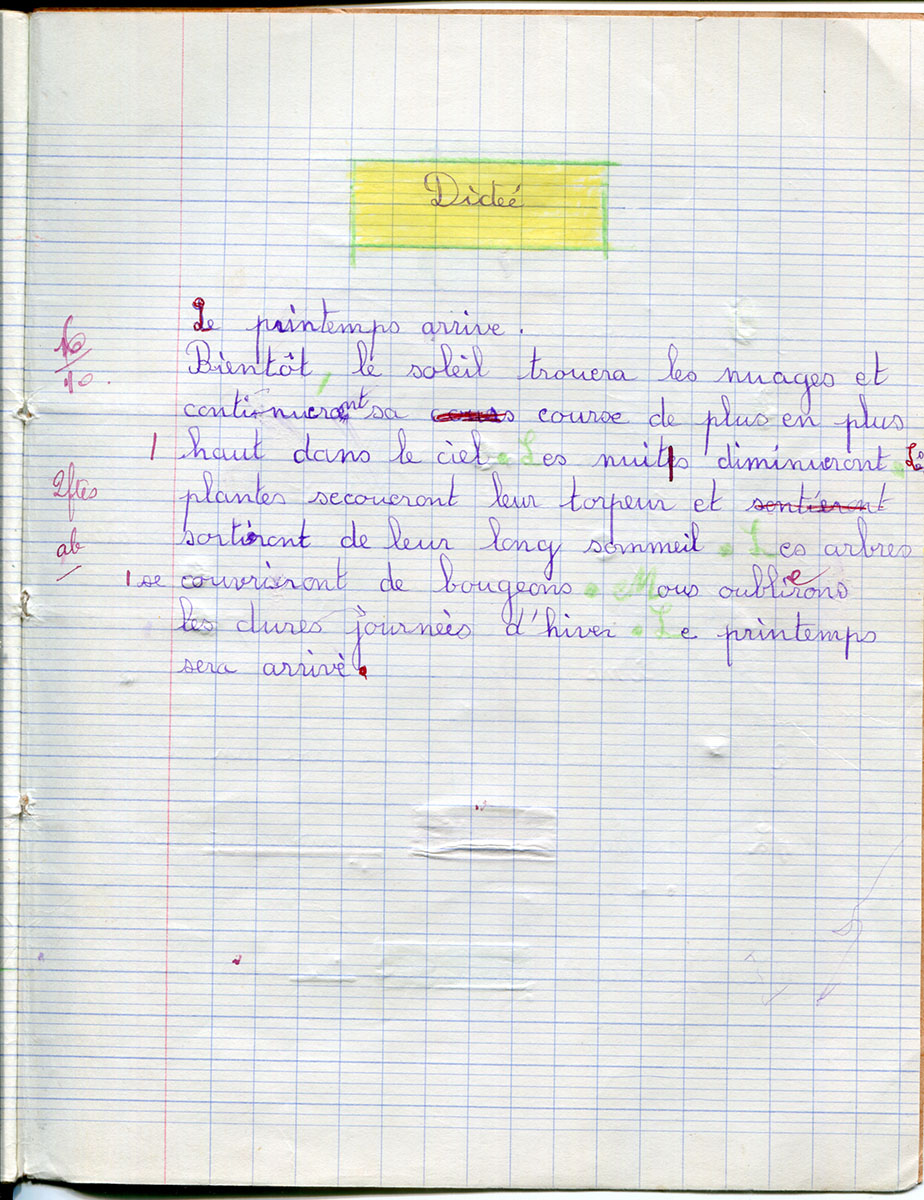 Dicteé
Le printemps arrive.
Bientôt, le soleil trouera les nuages et
continueront sa course de plus en plus
1 haut dans le ciel. Les nuits diminueront. Les
2 ftes plantes secoueront leur torpeur et sentieront
ab sortiront de leur long sommeil. Les arbres
1 se couvrieront de bougeons. Nous oublierons
les dures journèes d'hiver. Le printemps
sera arrivè.
10